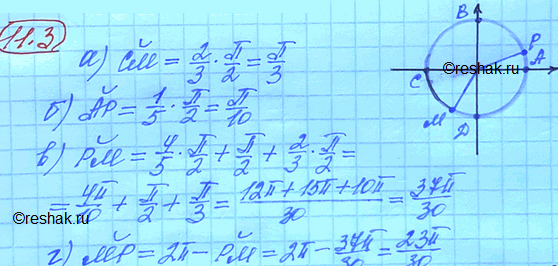 11.3
а) C͝M = 2/3 · π/2 = π/3
б) A͝P = 1/5 · π/2 = π/10
в) P͝M = 4/5 · π/2 + π/2 + 2/3 · π/2 =
= 4π/10 + π/2 + π/3 = (12π + 15π + 10π)/30 = 37π/30
г) M͝P = 2π − P͝M = 2π − 37π/30 = 23π/30
B
P
A
C
M
D
©reshak.ru
©reshak.ru
©reshak.ru